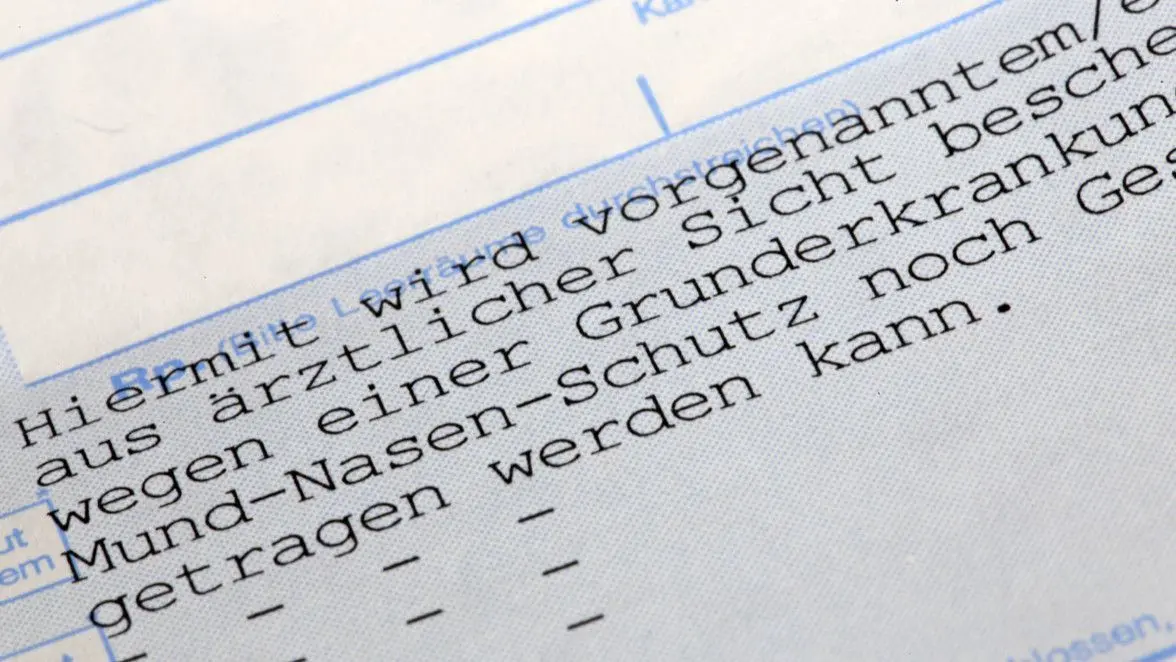 Rp. (Bitte Leerräume durchstreichen)
Hiermit wird vorgenanntem/e
aus ärztlicher Sicht besche
wegen einer Grunderkrankun
Mund-Nasen-Schutz noch Ges
getragen werden kann.
- - -
- - -
- - -
ut
em
t
lossen,